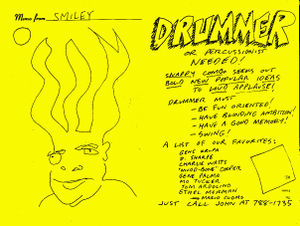 Memo from SMILEY
DRUMMER
OR PERCUSSIONIST
NEEDED!
SNAPPY COMBO SEEKS OUT
BOLD NEW POPULAR IDEAS
TO LOUD APPLAUSE!
DRUMMER MUST
- BE FUN ORIENTED!
- HAVE BLINDING AMBITION!
- HAVE A GOOD MEMORY!
- SWING!
A LIST OF OUR FAVORITES:
GENE KRUPA
D. SHARPE
CHARLIE WATTS
COOPER
GENE PALMO
MO TUCKER
TOM ARDOLINO
ETHEL MERMAN
- MARIO CUOMO
JUST CALL JOHN AT 788-1735